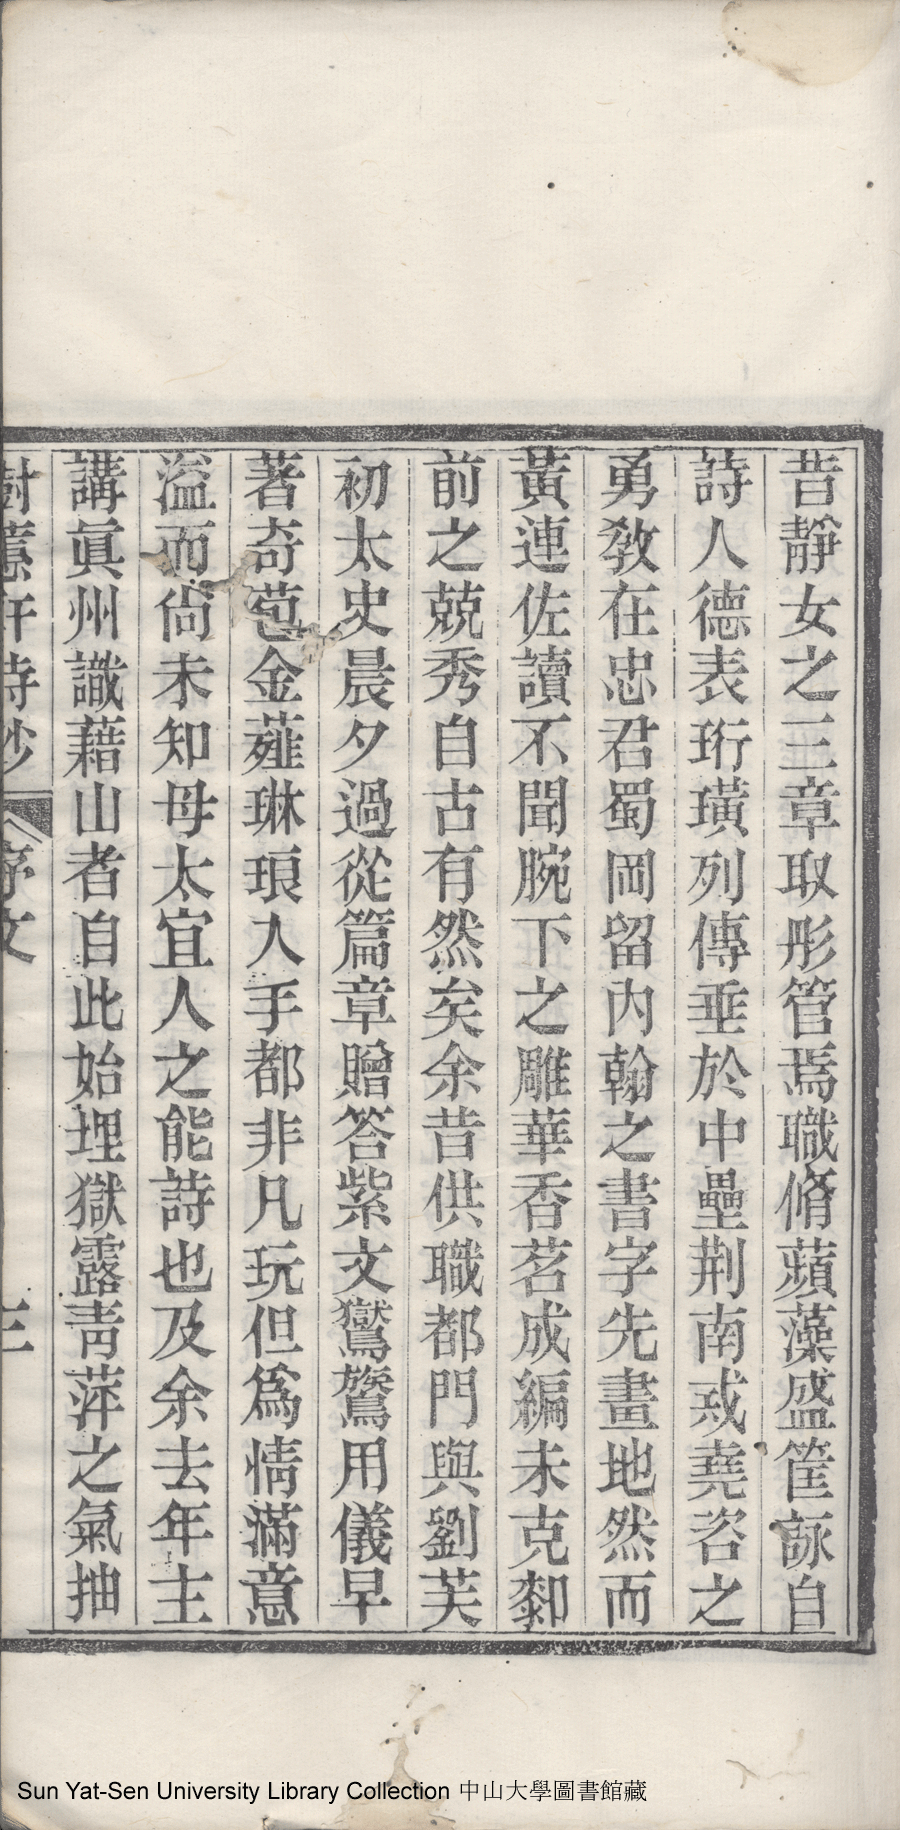 昔靜女之三章取彤管焉職脩蘋藻盛筐詠自
詩人德表珩璜列傳垂於中壘荆南戎堯咨之
勇敎在忠君蜀岡留內翰之書字先畫地然而
黃連佐讀不聞腕下之雕華香茗成編未克
前之兢秀自古有然矣余昔供職都門與劉芙
初太史晨夕過從篇章贈答紫文鸑鷟用儀早
著奇苞金薤琳琅入手都非凡玩但爲情滿意
溢而尙未知母太宜人之能詩也及余去年主
講眞州識藉山者自此始埋獄露靑萍之氣抽
樹蕙軒詩鈔 序文 三
Sun Yat-Sen University Library Collection 中山大學圖書館藏